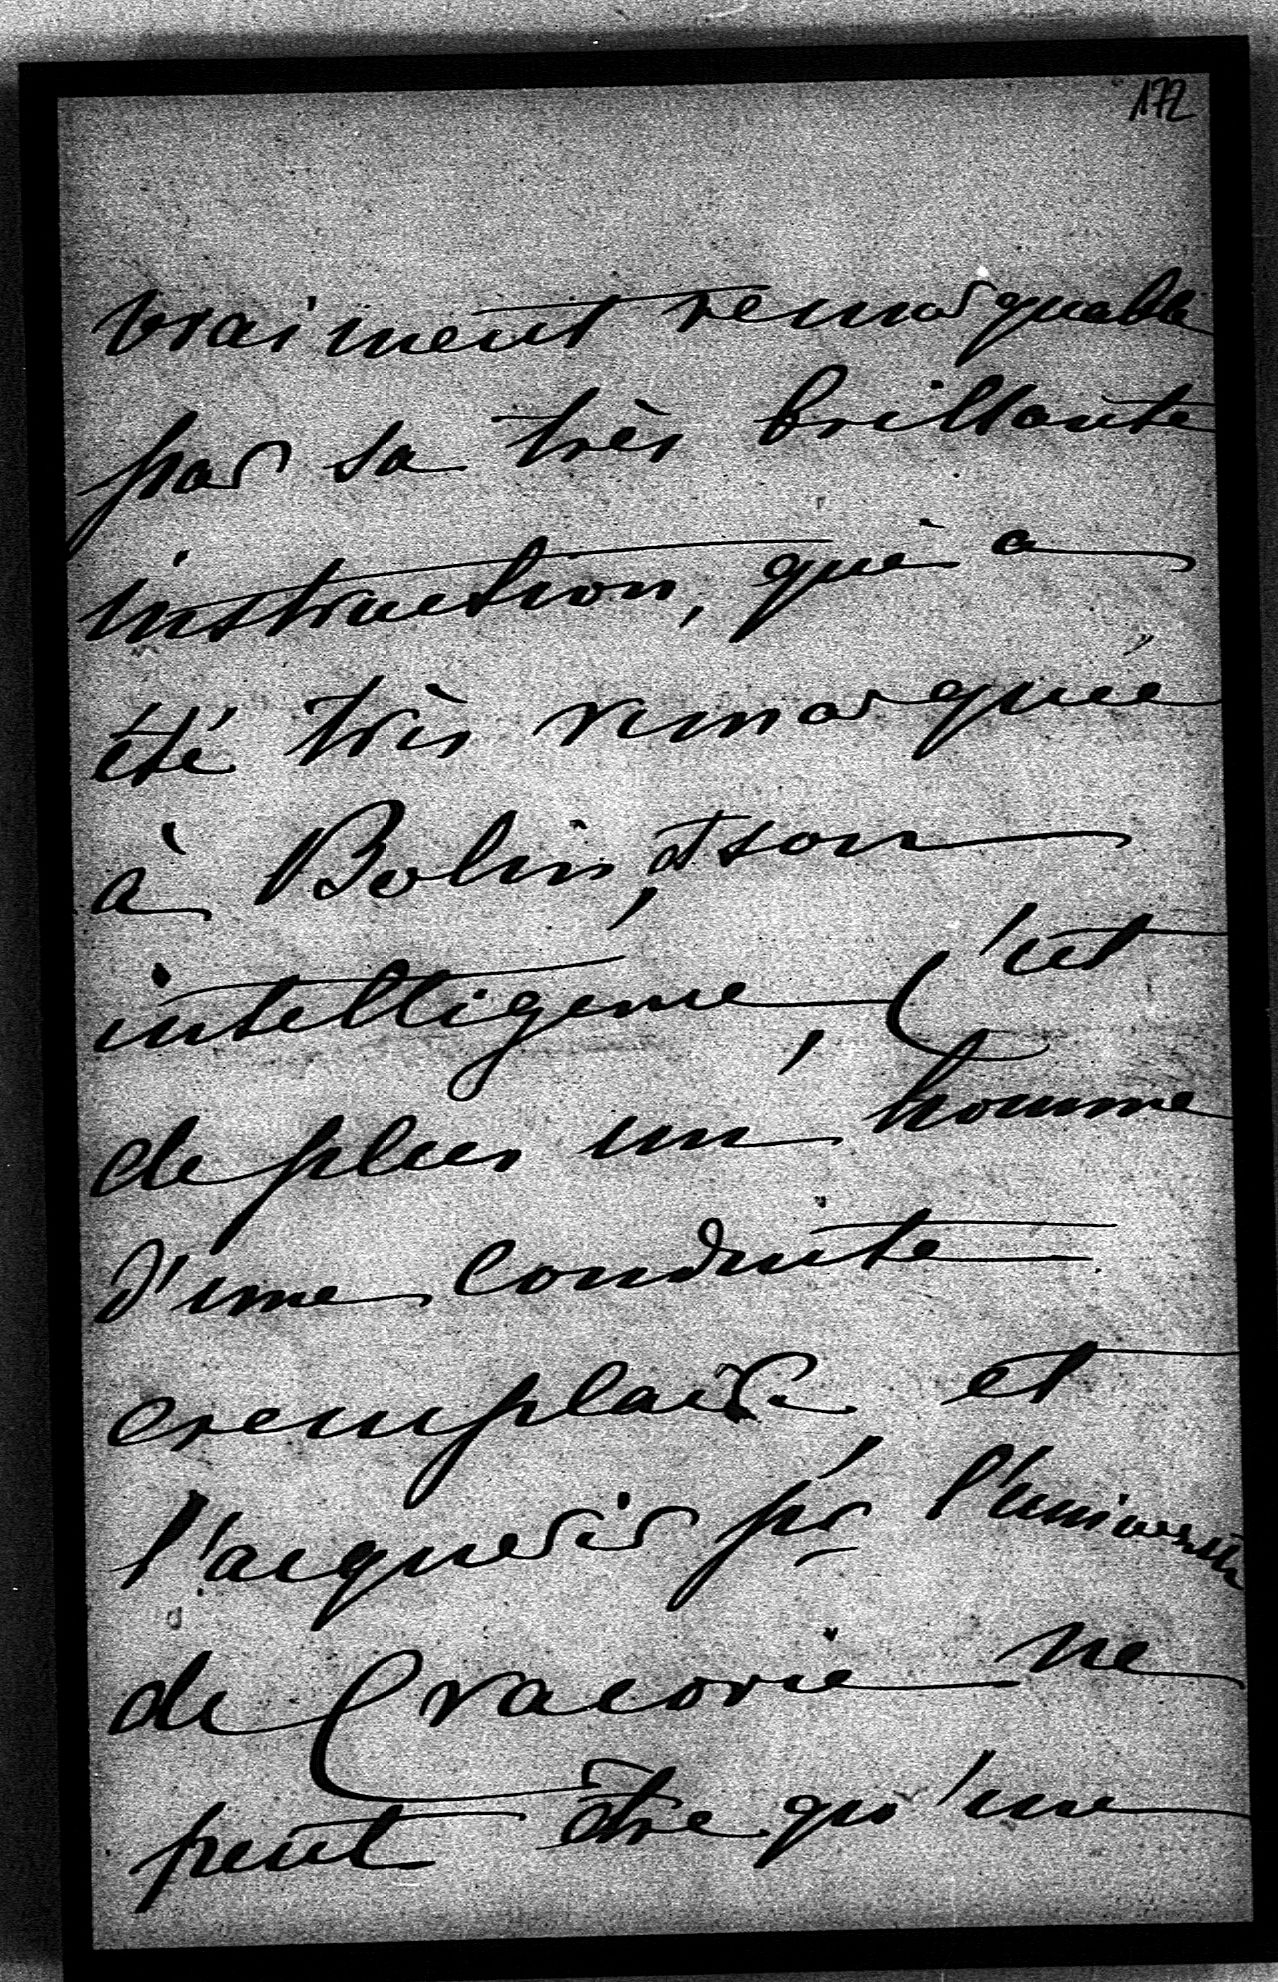 172
vraiment remarquable
par sa très brillante
instruction, qui a
été très remarquée
à Bolin, et son
intelligence, C'est
de plus un homme
d'une conduite
exemplaire et
l'acquerir pr l'université
de Cracovie ne
peut être qu'une